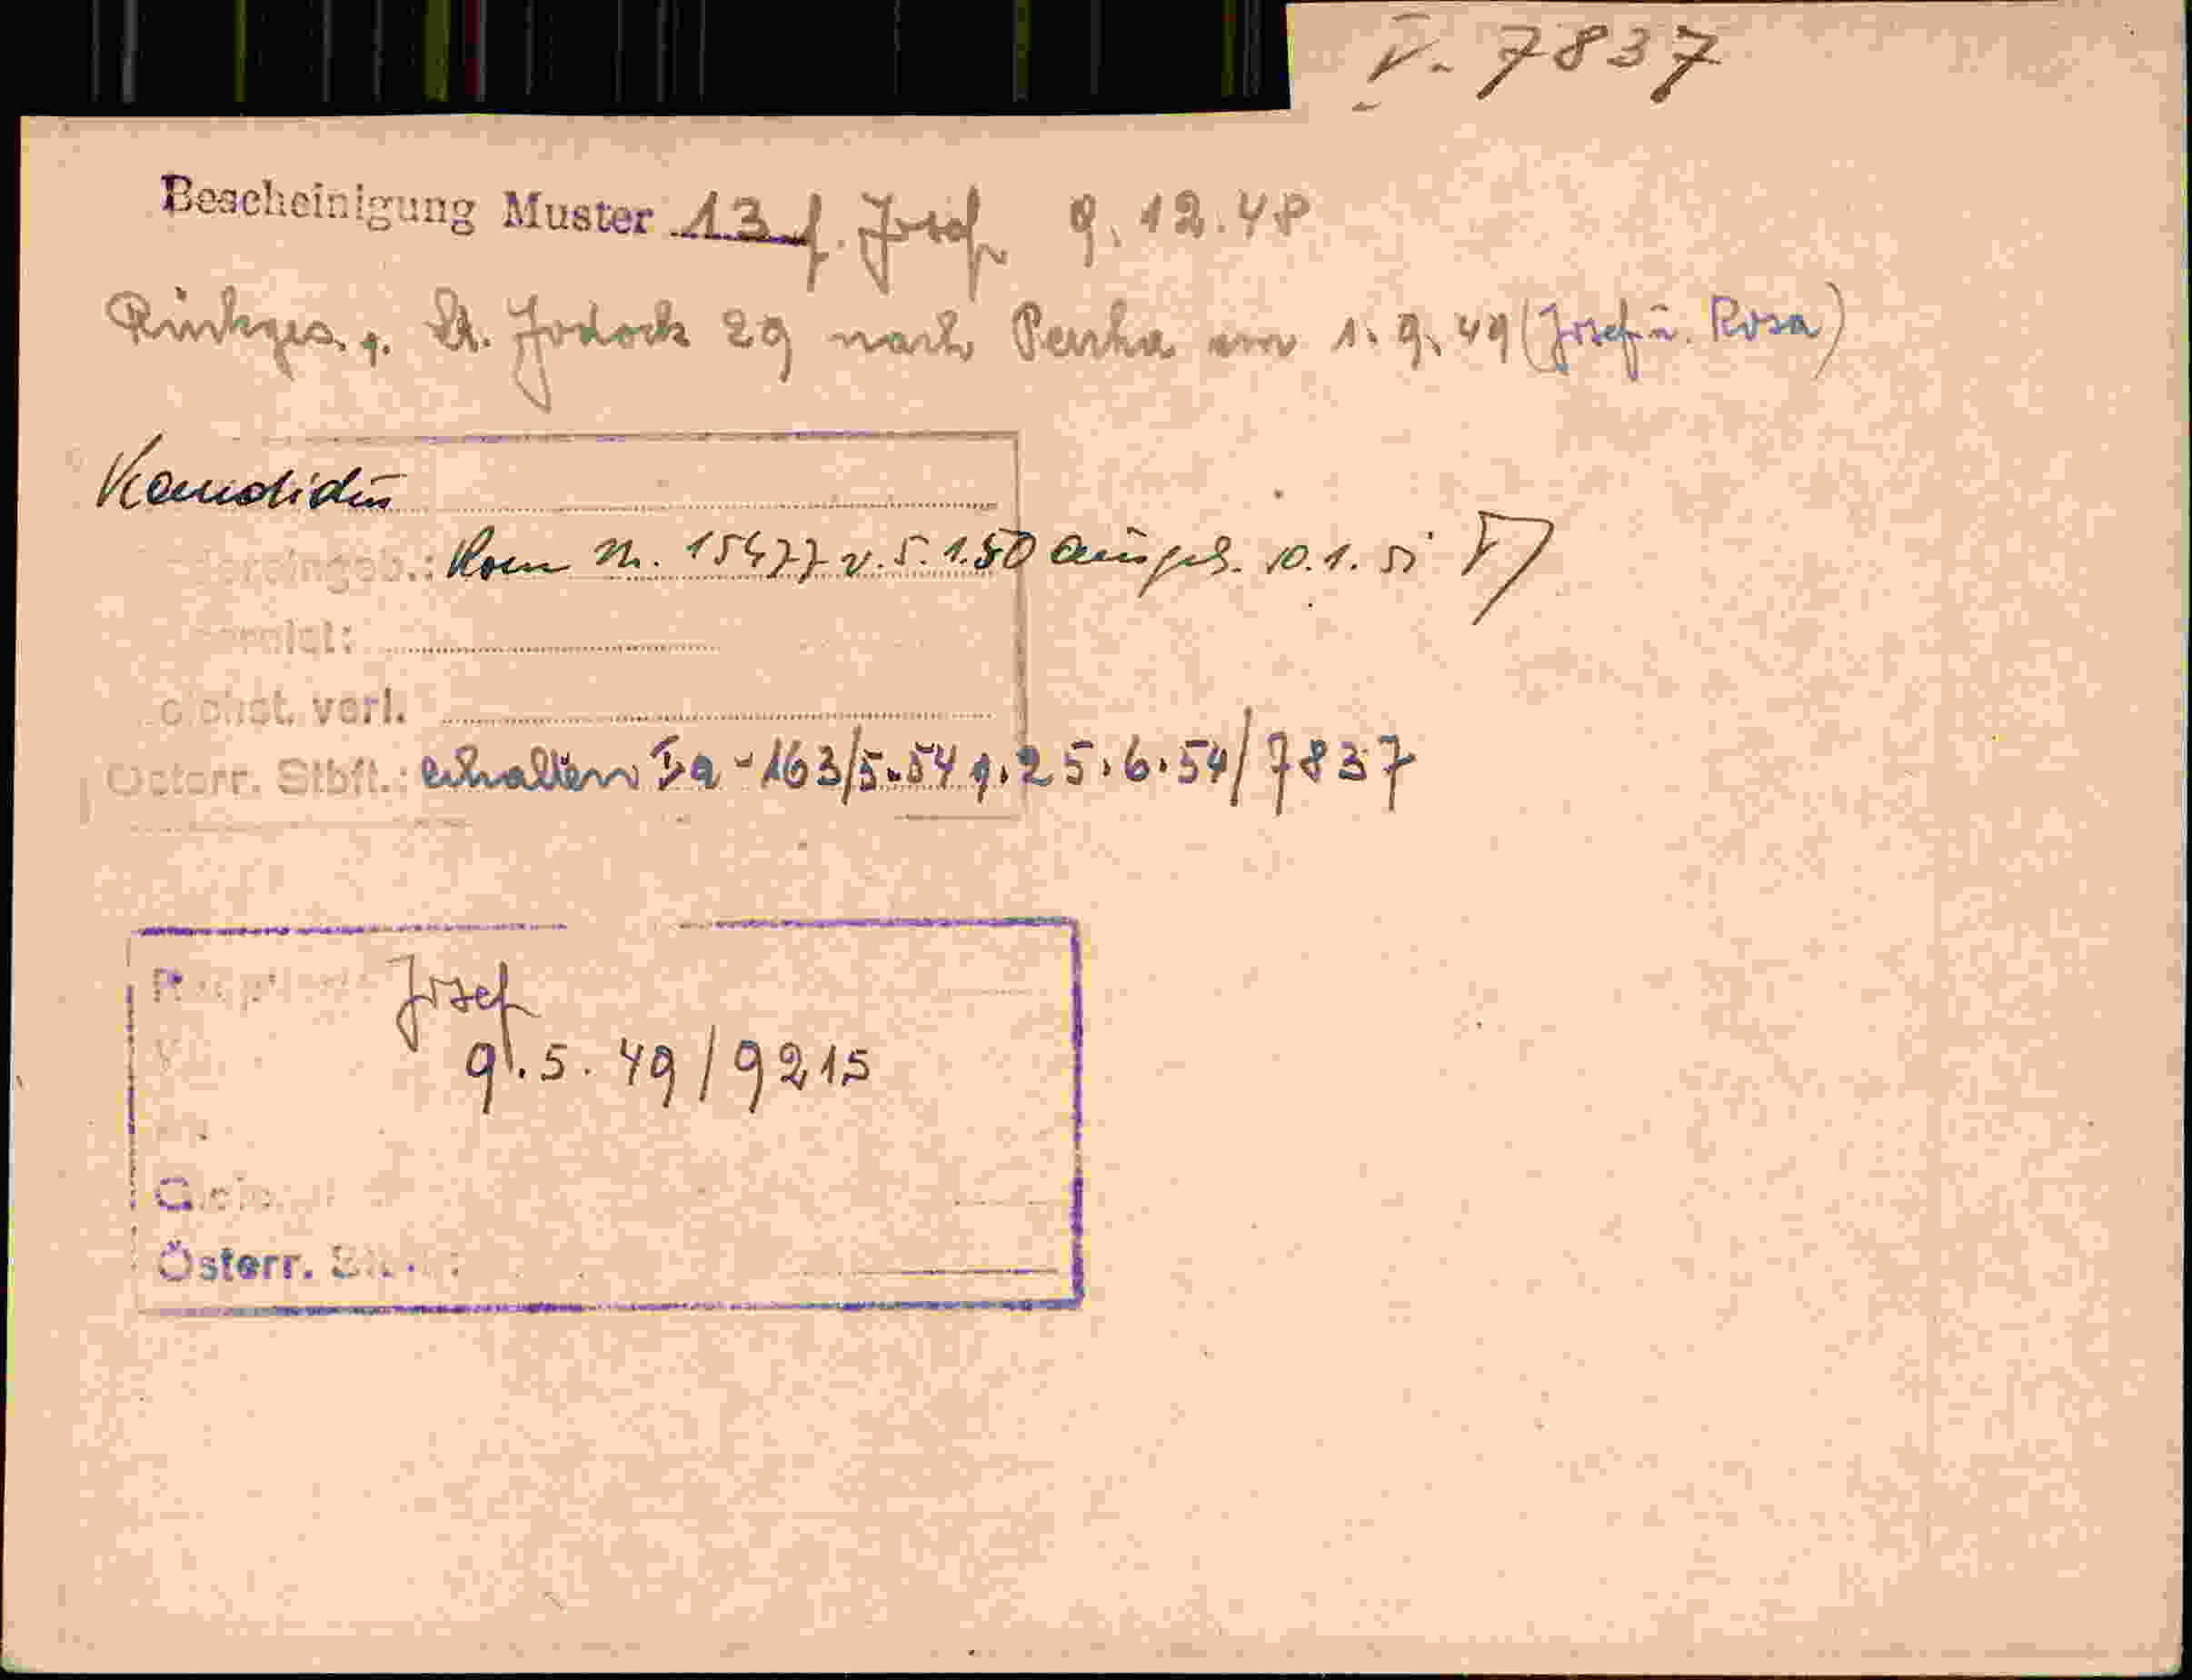 V. 7837
Bescheinigung Muster 13 f. Josef 9.12.48
Rückges. q. St. Jodock 29 nach Percha am 1.9.49 (Josef u. Rosa)
Kandidus
Rom Nr. 15477 v. 5.1.50 ausgeh. 10.1.51
verl.
Österr. Stbft.: erhalten Ia-163/5-54 q. 25.6.54/7837
Josef
9.5.49/9215
Österr.